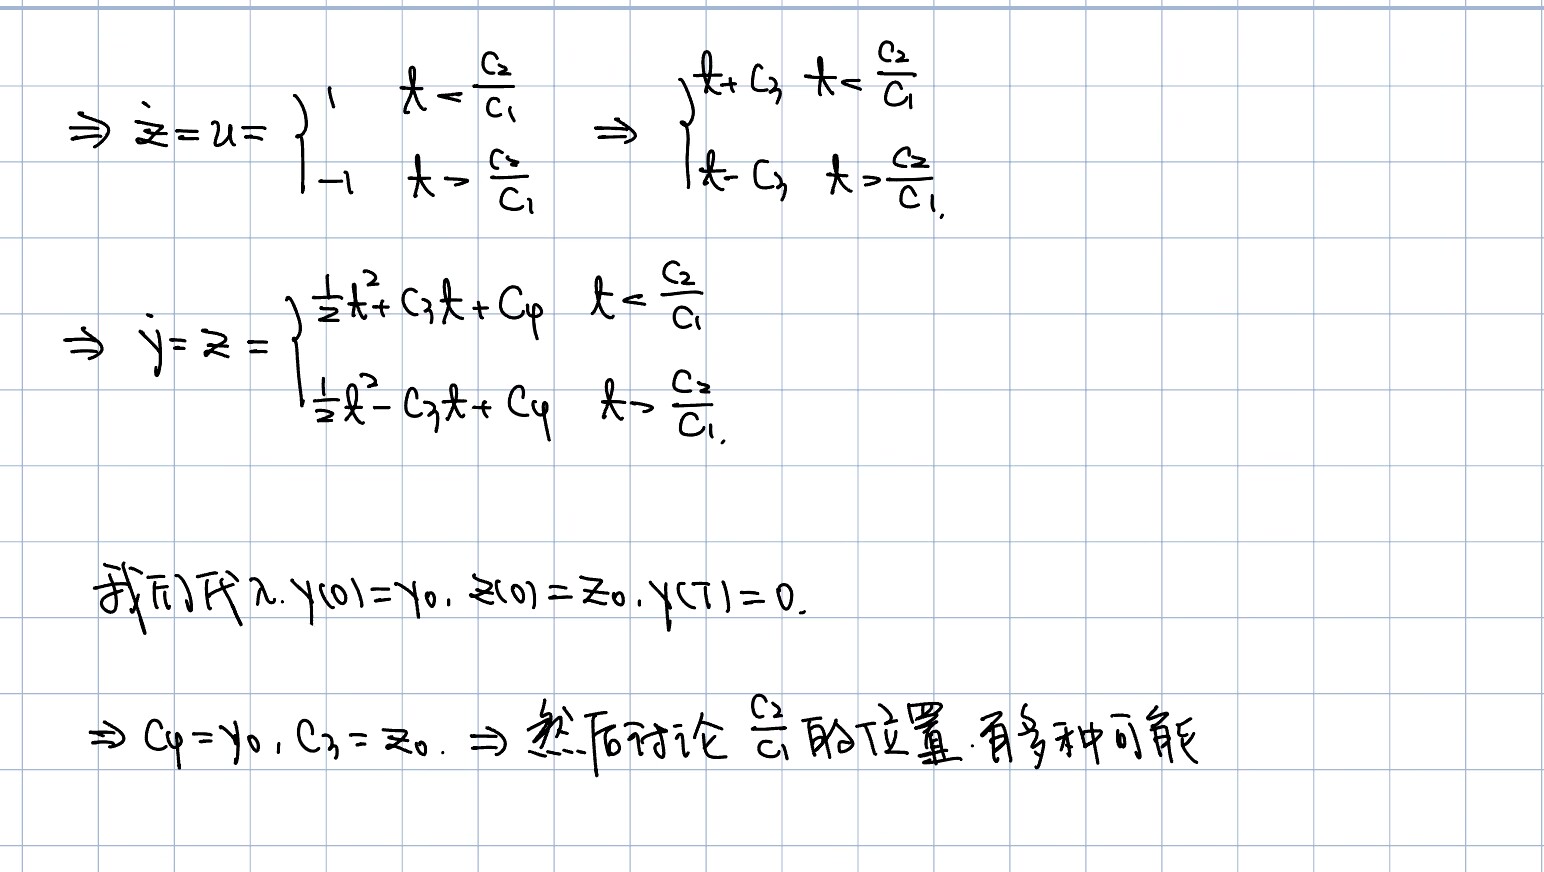 ⇒ ż = u = { 1 t < C₂/C₁ ; -1 t > C₂/C₁ ⇒ { t + C₃ t < C₂/C₁ ; t - C₃ t > C₂/C₁.
⇒ ẏ = z = { ½t² + C₃t + C₄ t < C₂/C₁ ; ½t² - C₃t + C₄ t > C₂/C₁.
我们代入. y(0) = y₀, z(0) = z₀, y(T) = 0.
⇒ C₄ = y₀, C₃ = z₀. ⇒ 然后讨论 C₂/C₁ 的位置. 有多种可能